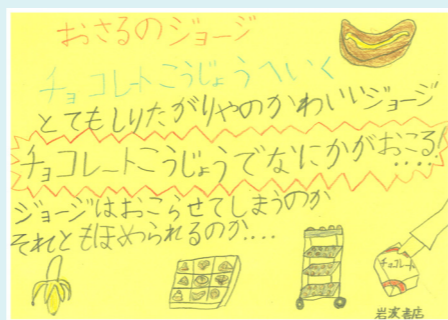 おさるのジョージ
チョコレートこうじょうへいく
とてもしりたがりやのかわいいジョージ
チョコレートこうじょうでなにかがおこる!
.....
ジョージはおこらせてしまうのか
それともほめられるのか....
チョコレート
岩波書店